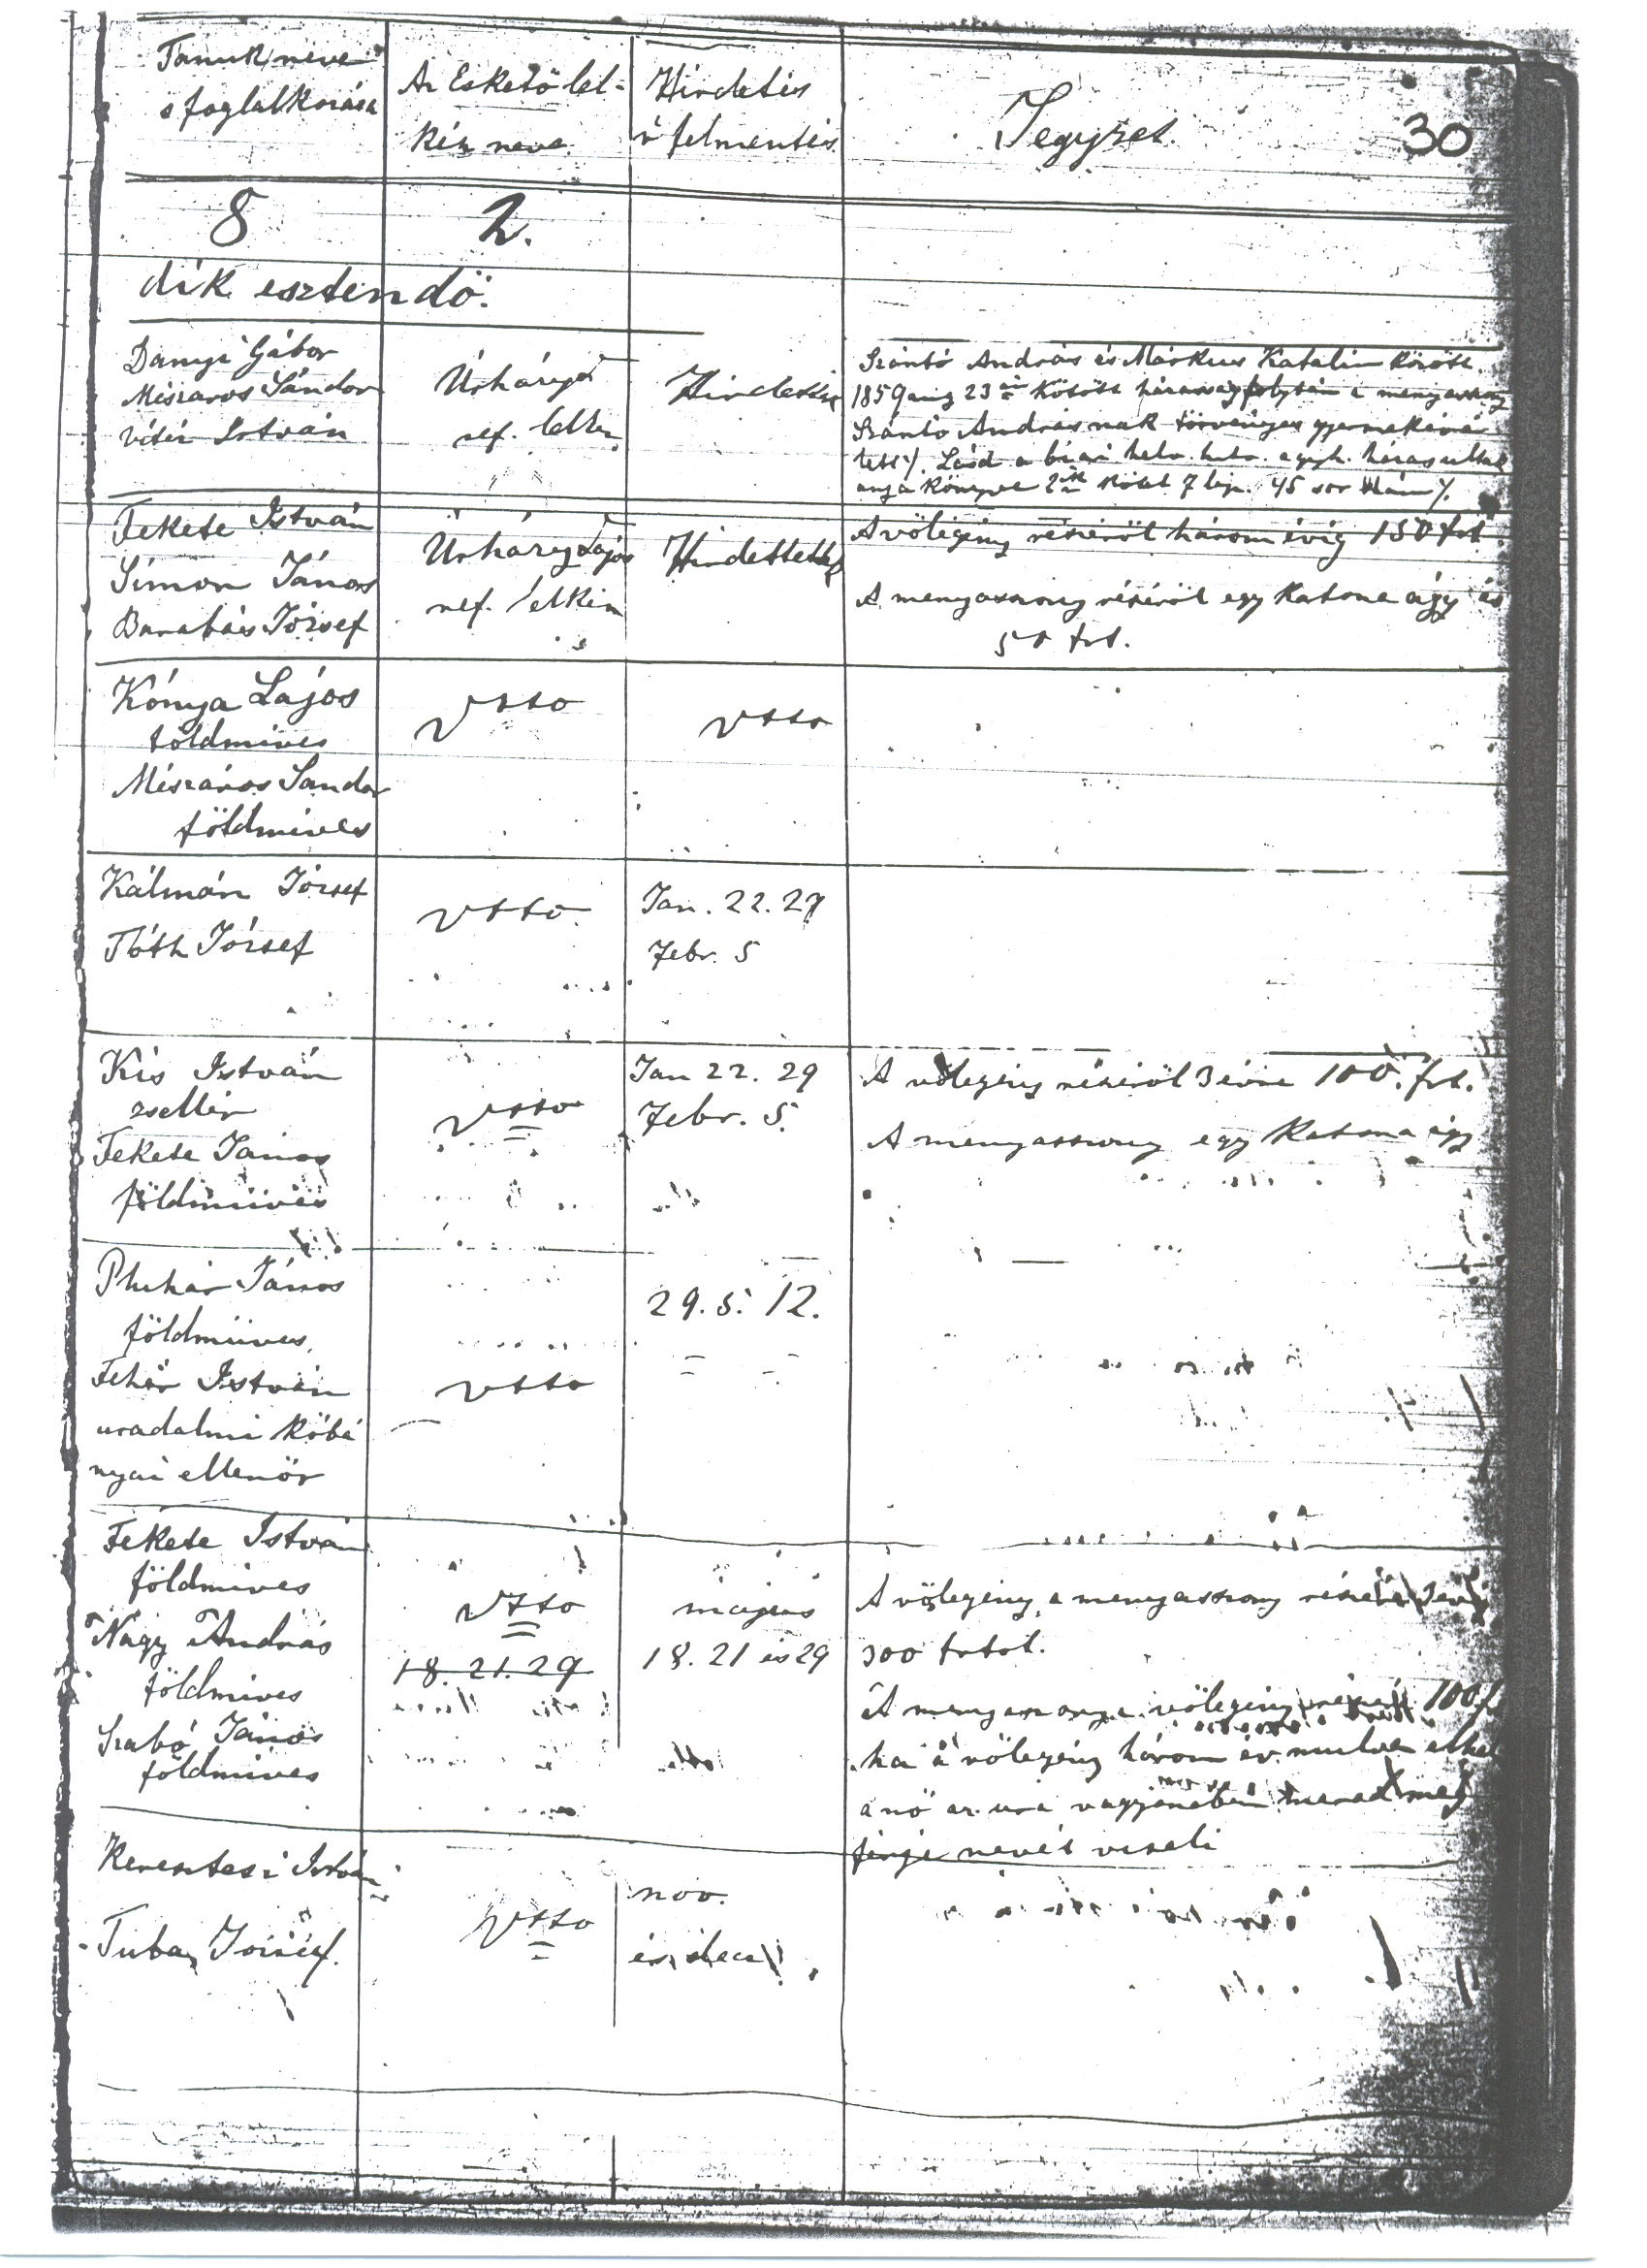 Tanuk neve
s foglalkozása
Az Esketö lel-
kész neve.
Hirdetés
v felmentés
Jegyzet.
30
8
2.
dik esztendö.
Danyi Gábor
Mészáros Sándor
Vétér István
Úrházy
ref. lelkész
Hirdettetett
Szántó András és Márkus Katalin között
1859 aug 23án kötött házasság folytán a menyasszony
Szántó Andrásnak törvényes gyermekévé
lett /. Lásd a biai helv. hitv. egyh. házasultak
anyakönyve 2ik kötet 7 lap. 45 sor szám /.
Fekete István
Simon János
Barabás József
Úrházy Lajos
ref. lelkész
Hirdettettek
A völegény részéröl három évig 150 frt.
A menyasszony részéröl egy katona ágy és
50 frt.
Kónya Lajos
földmives
Mészáros Sandor
földmives
Vtto
Vtto
Kálmán József
Tóth József
Vtto
Jan. 22. 29
Febr. 5
Kis István
zsellér
Fekete János
földmüves
Vtto
Jan 22. 29
Febr. 5.
A völegény részéröl 3 évre 100. frt.
A menyasszony egy katona ágy
Pluhár János
földmüves
Fehér István
uradalmi köbá
nyai ellenör
Vtto
29. 5. 12.
Fekete István
földmives
Nagy András
földmives
Szabó János
földmives
Vtto
18. 21. 29
május
18. 21 és 29
A völegény a menyasszony részére 3 évig
300 frtot.
A menyasszony a völegény részére 100 f
ha a völegény három év mulva elhal
a nö az ura vagyonában marad mig
férje nevét viseli
Keresztesi István
Tuba József.
Vtto
nov.
és dec